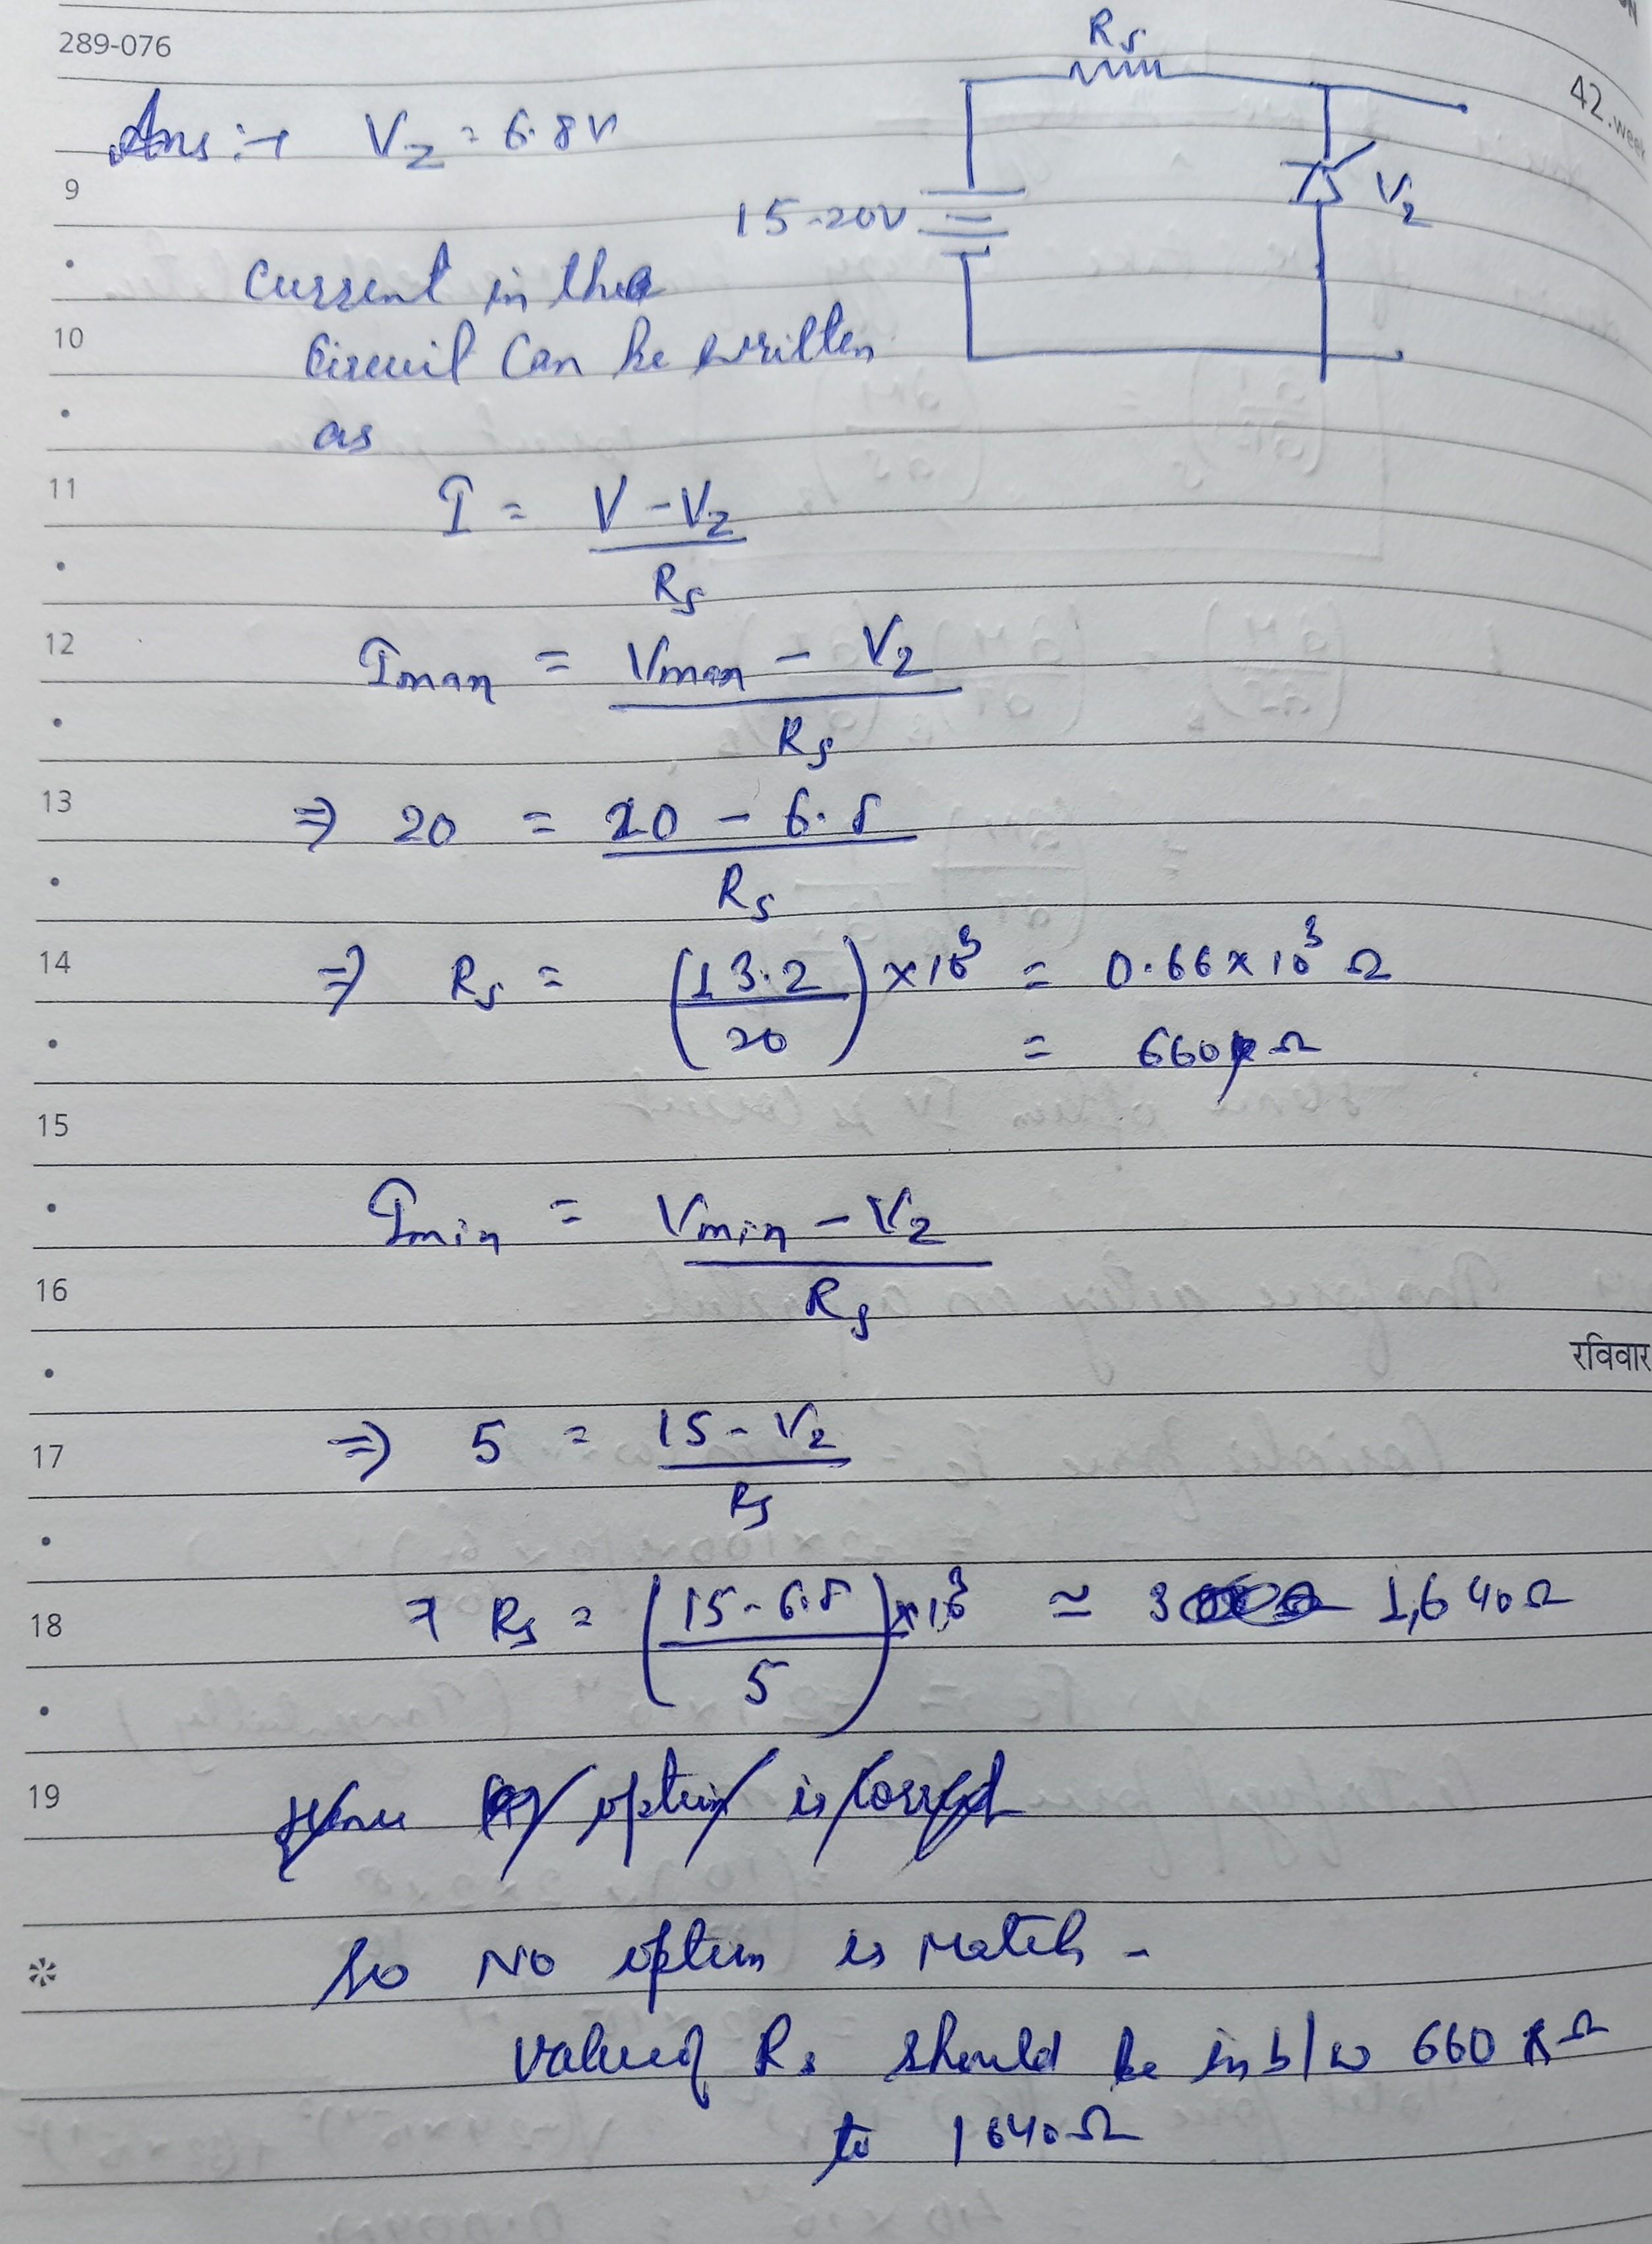 289-076
42. week
Rs
Ans :→ VZ = 6.8V
15-20V
VZ
9
Current in the
10
Circuit Can be written
as
11
I = V - VZ / Rs
12
Imax = Vmax - VZ / Rs
13
⇒ 20 = 20 - 6.8 / Rs
14
⇒ Rs = (13.2 / 20) × 10³ = 0.66 × 10³ Ω
= 660 Ω
15
Imin = Vmin - VZ / Rs
16
रविवार
17
⇒ 5 = 15 - VZ / Rs
18
⇒ Rs = (15 - 6.8 / 5) × 10³ ≃ 1,640 Ω
19
Hence option is correct
So No option is match -
value of Rs should be in b/w 660 Ω
to 1640 Ω